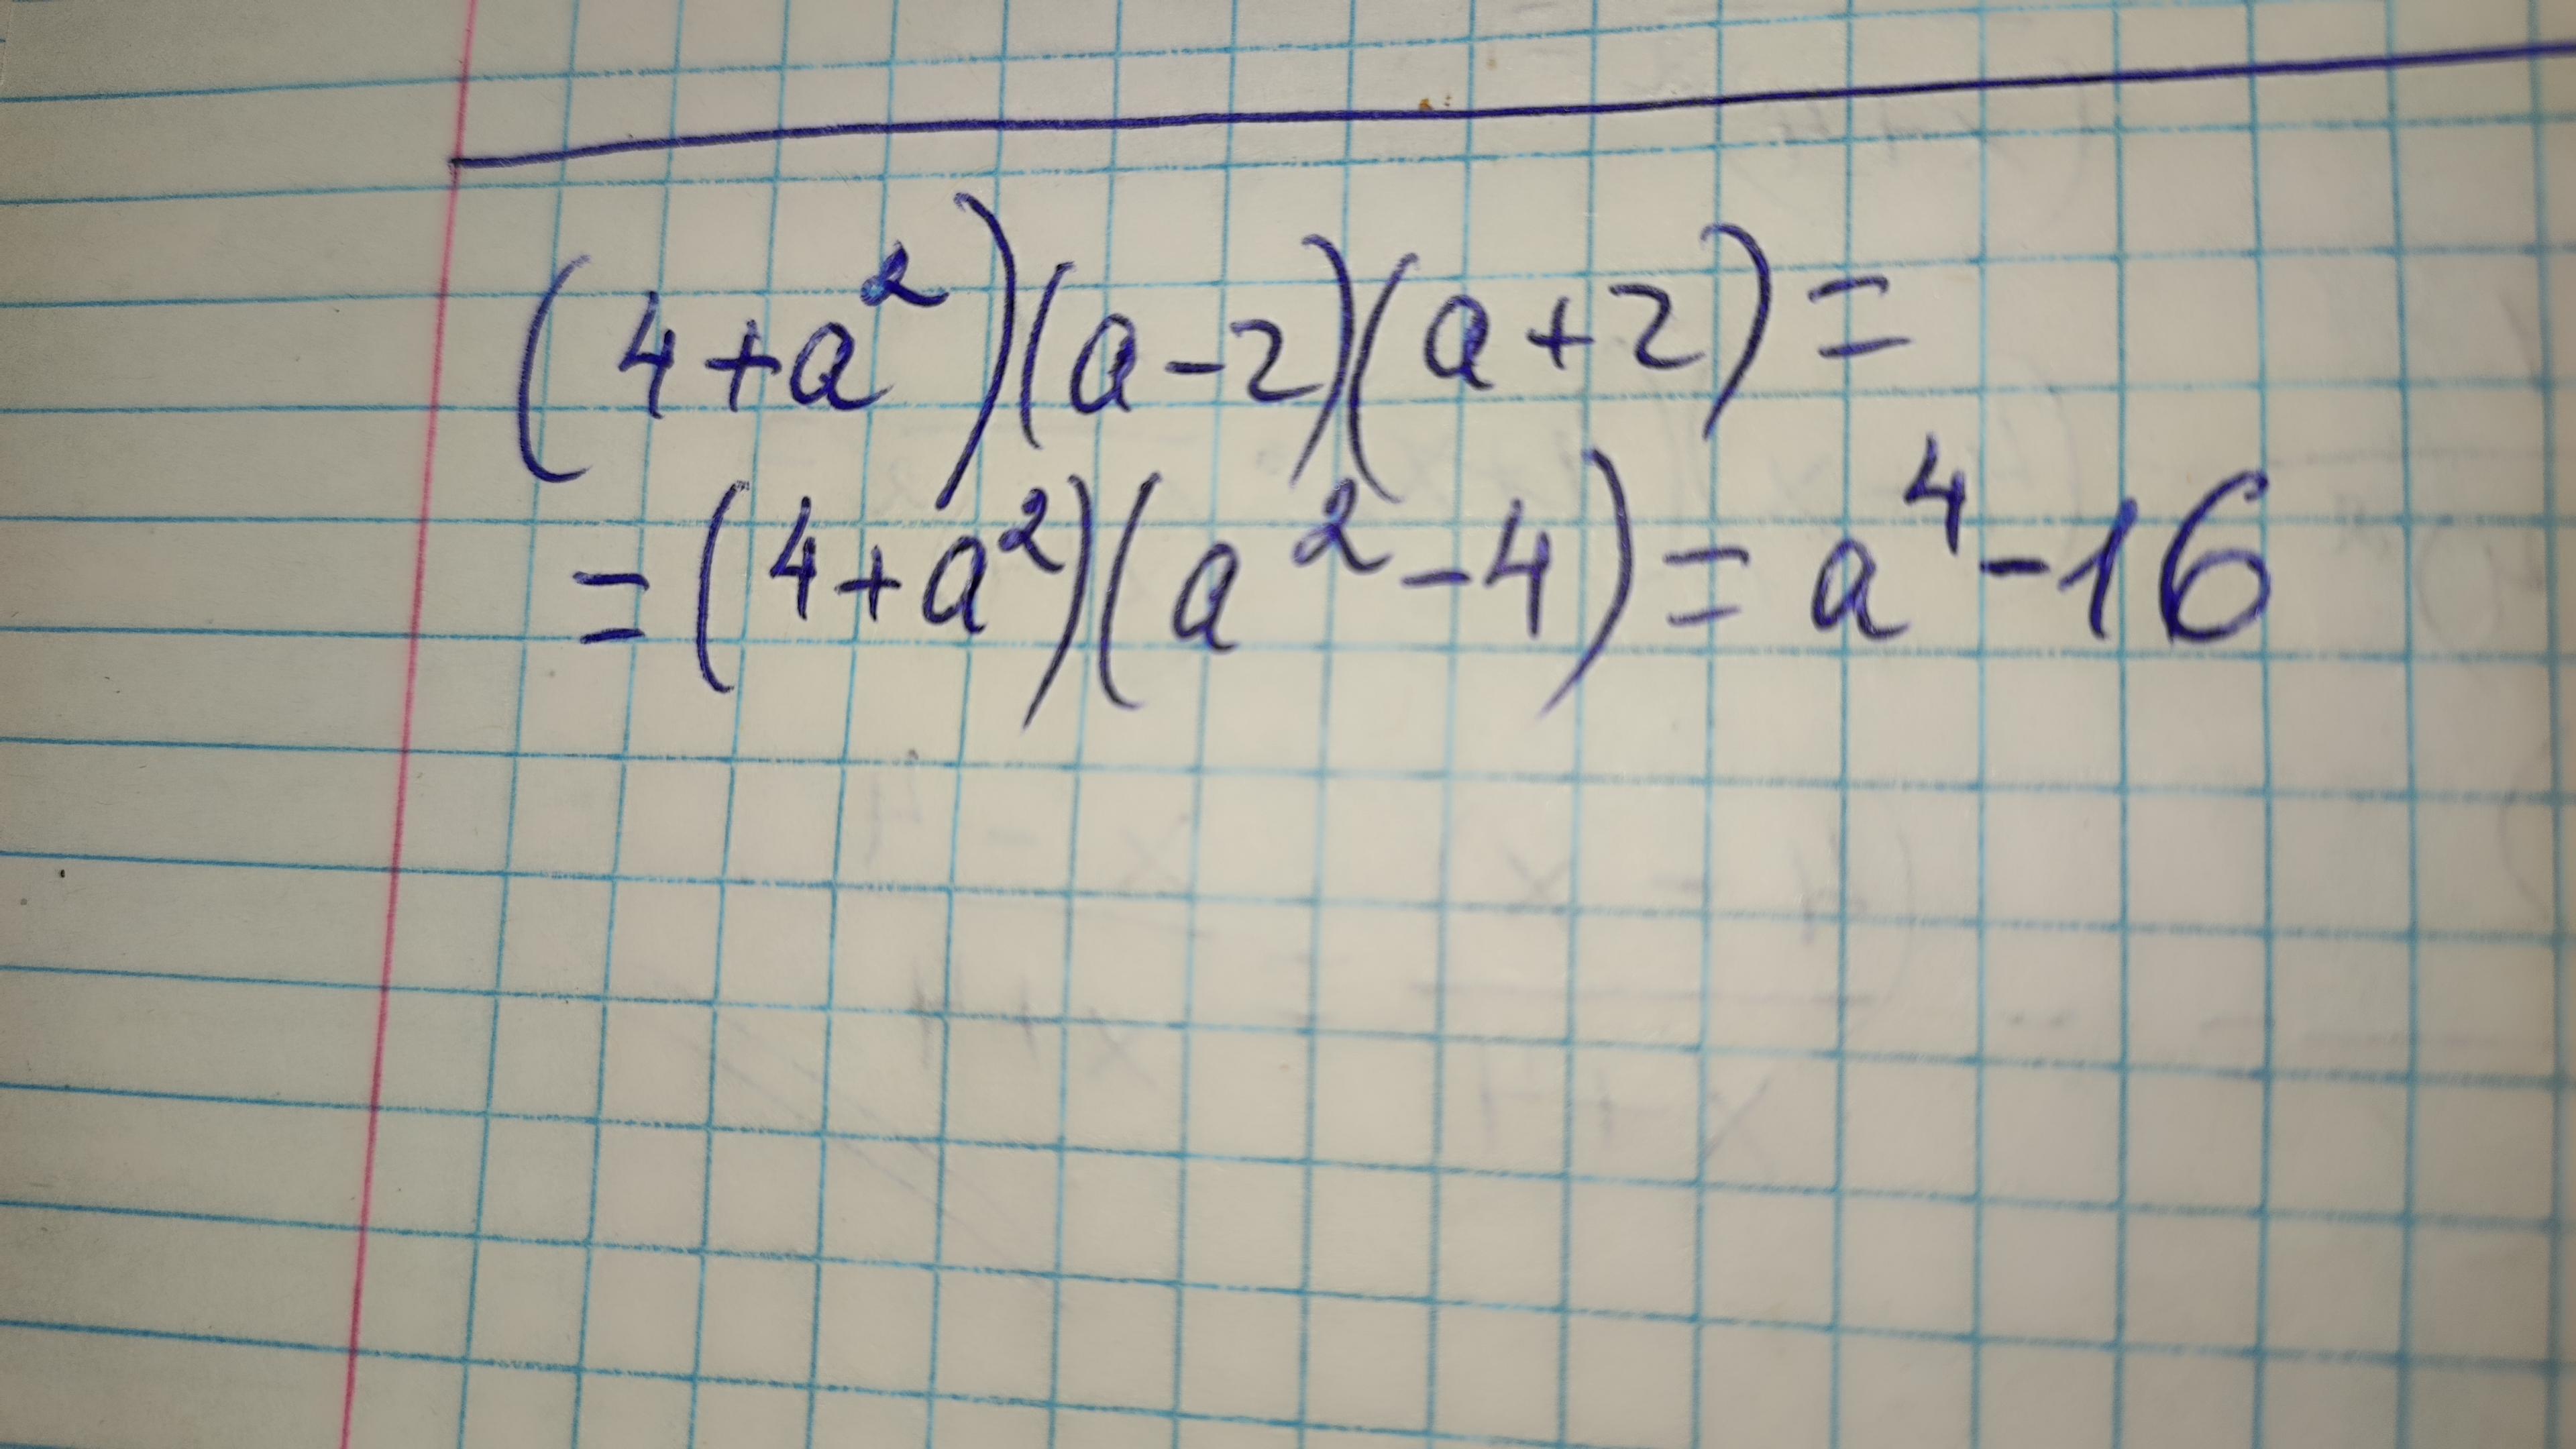 (4+a²)(a-2)(a+2)=
=(4+a²)(a²-4)=a⁴-16